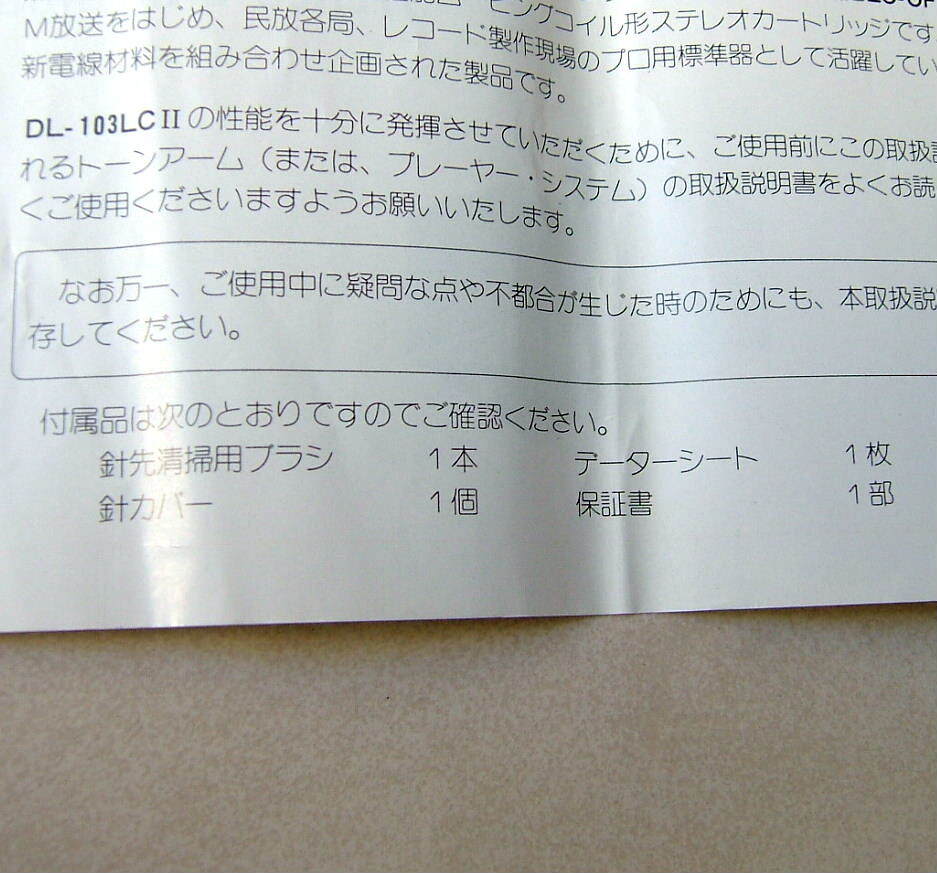 M放送をはじめ、民放各局、レコード製作現場のプロ用標準器として活躍してい
新電線材料を組み合わせ企画された製品です。
DL-103LCIIの性能を十分に発揮させていただくために、ご使用前にこの取扱説
れるトーンアーム（または、プレーヤー・システム）の取扱説明書をよくお読
くご使用くださいますようお願いいたします。
なお万一、ご使用中に疑問な点や不都合が生じた時のためにも、本取扱説
存してください。
付属品は次のとおりですのでご確認ください。
針先清掃用ブラシ 1本 データーシート 1枚
針カバー 1個 保証書 1部